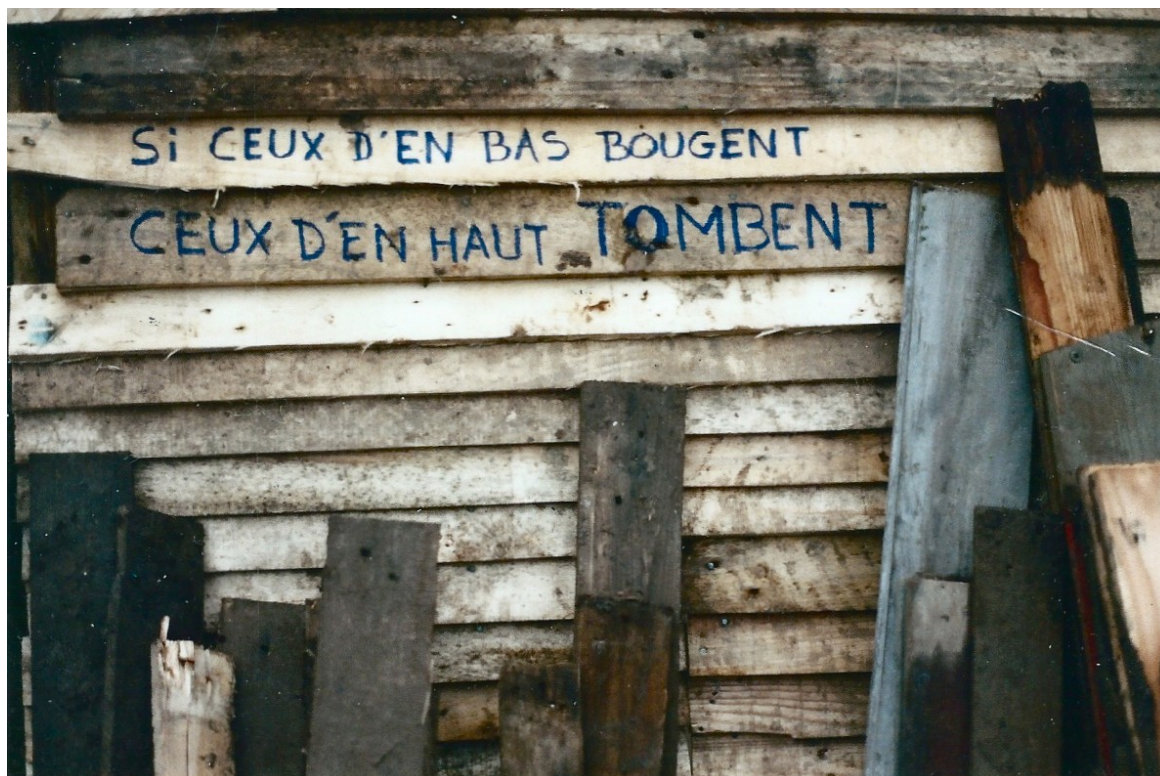 Si CEUX D'EN BAS BOUGENT
CEUX D'EN HAUT TOMBENT